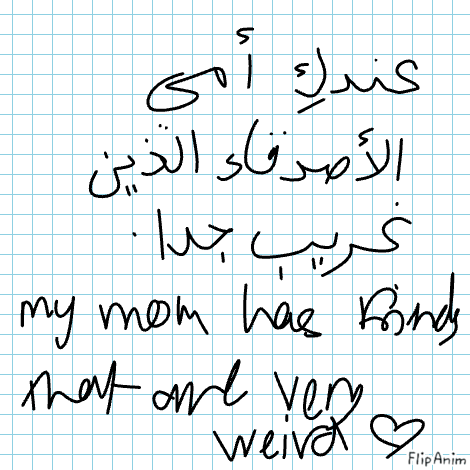 عندكِ أمى
الأصدقاء الذين
غريب جدا.
my mom has
that are very
weird ♡
FlipAnim